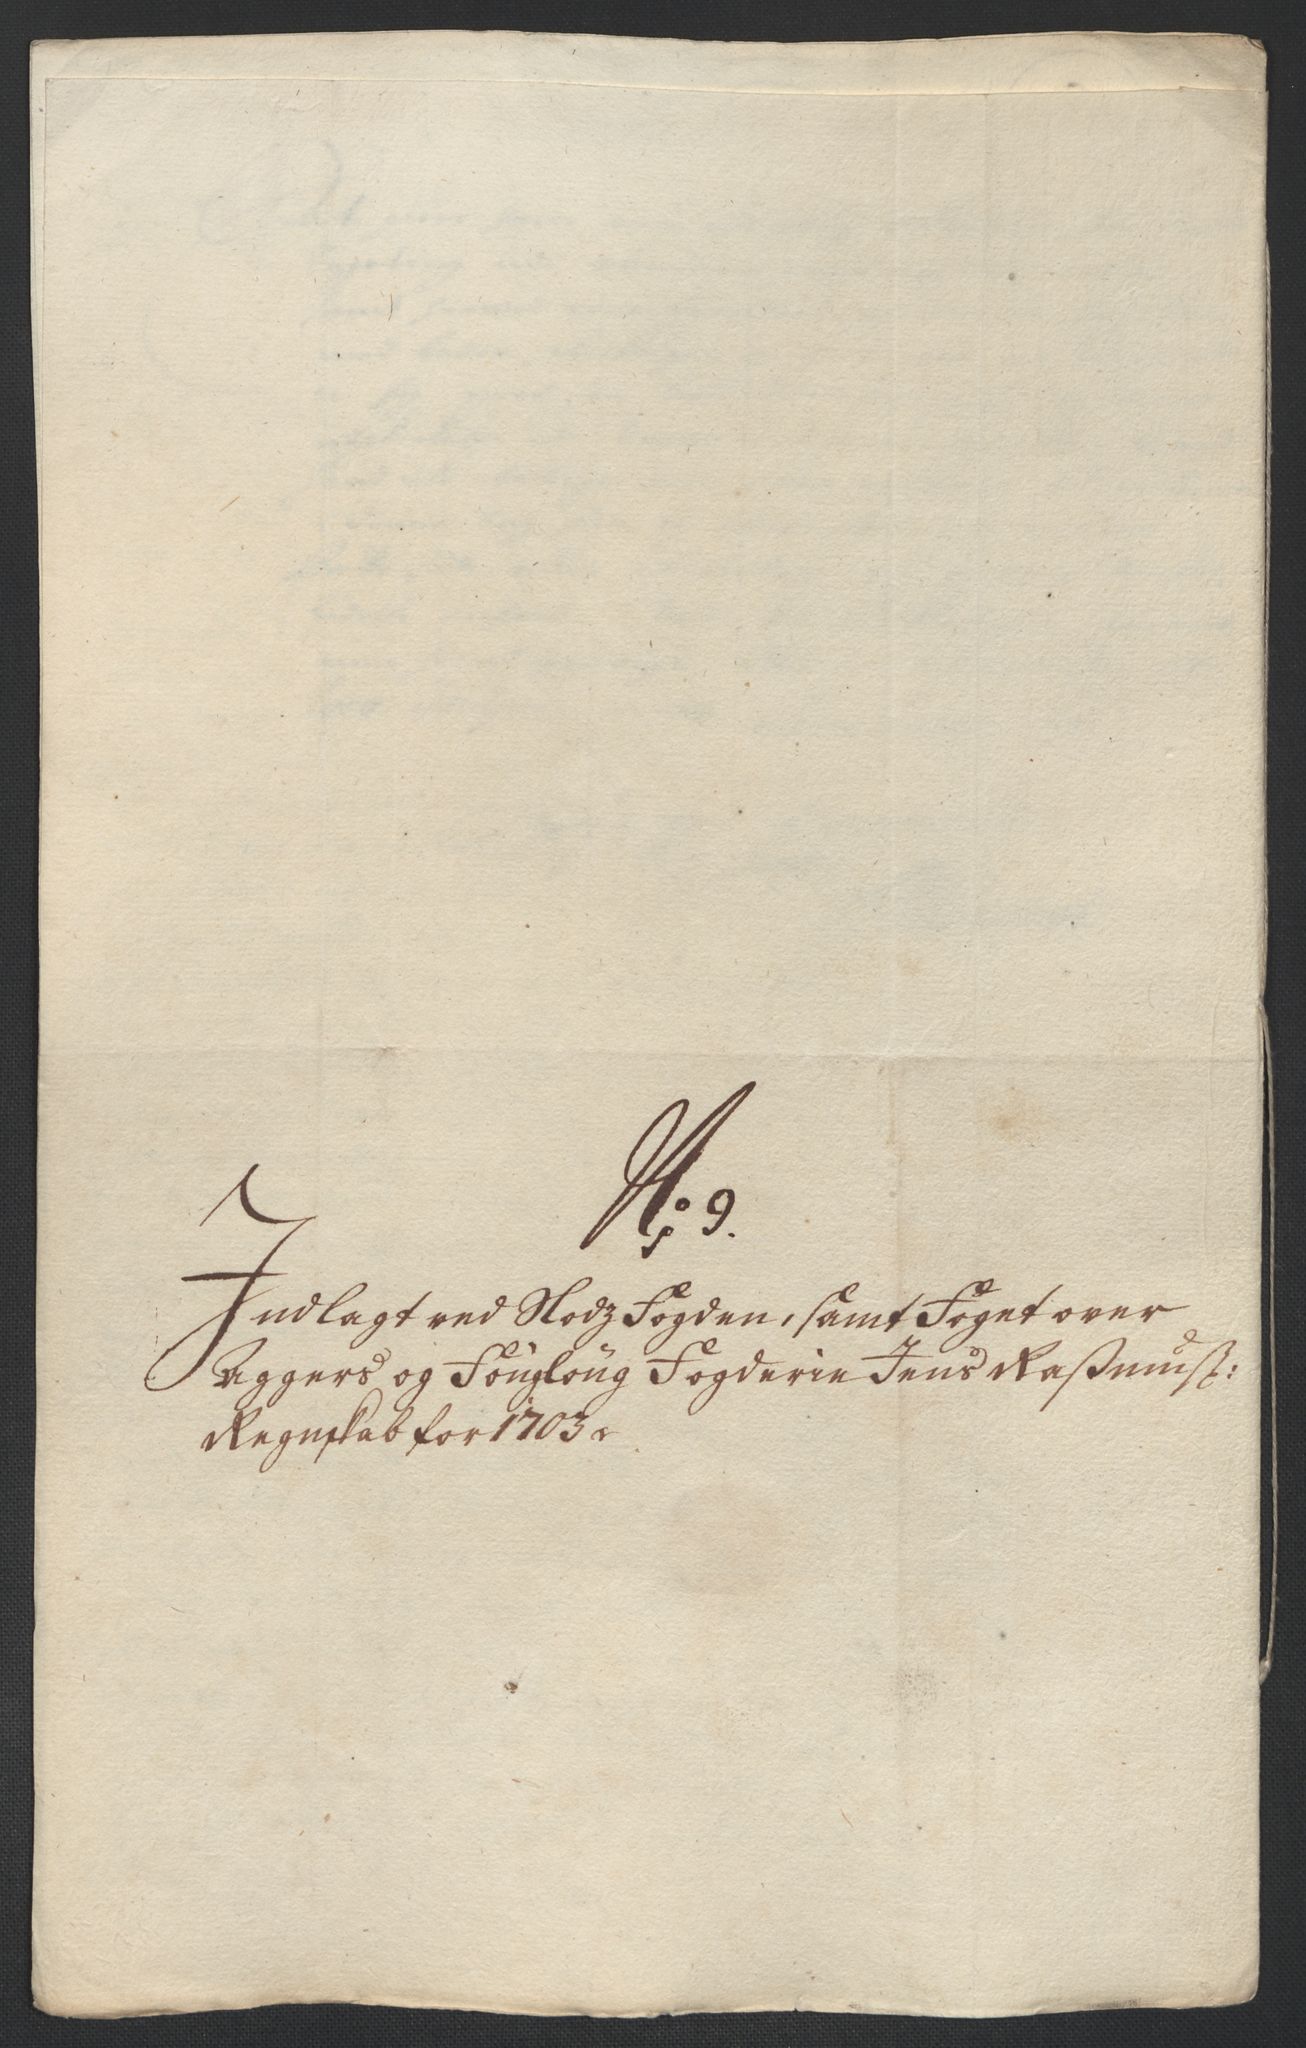 No: 9.
Indlagt ved Slodz Fogden, samt Foget over
Aggers og Föugloug Fogderie Jens Raßmuß:
Regnskab for 1703